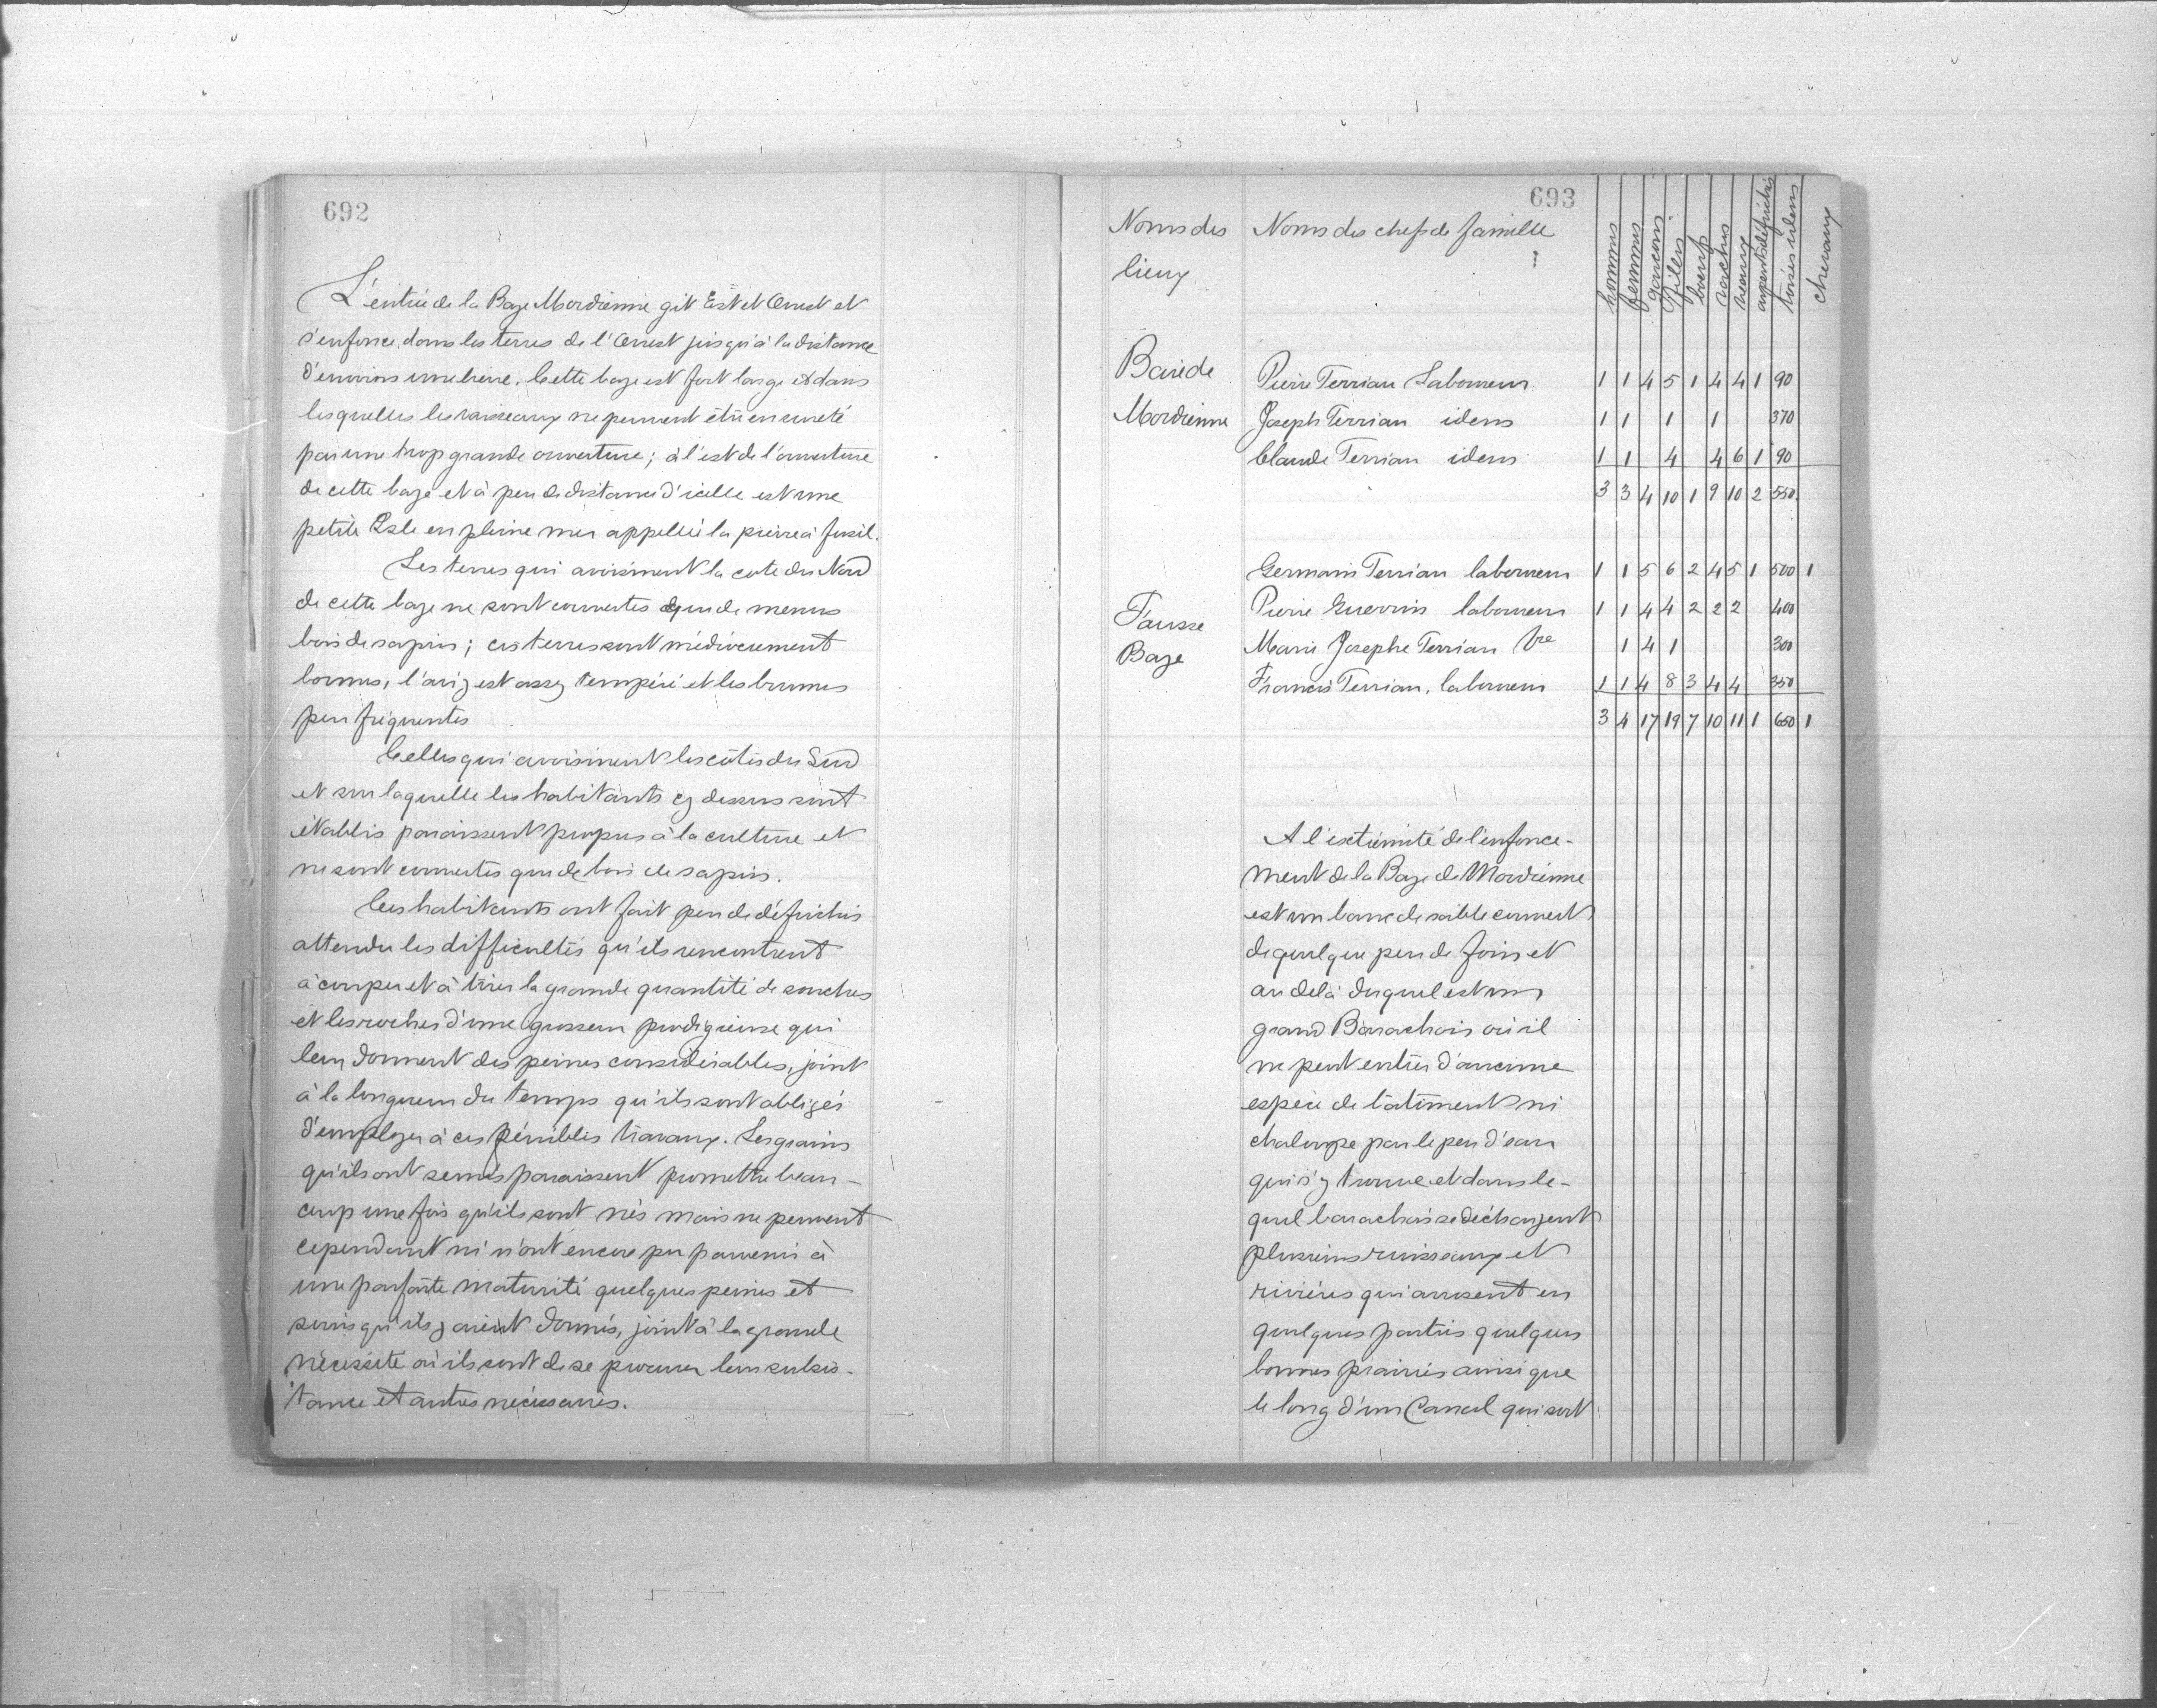 692
L'entrée de la Baze Mordienne git Est et Ouest et
s'enfonce dans les terres de l'Ouest jusqu'à la distance
d'environs une lieue. Cette baze est fort large et dans
lesquelles les vaisseaux ne peuvent être en cureté
par une trop grande ouverture; à l'est de l'ouverture
de cette baze et à peu de distance d'icelle est une
petite Isle en pleine mer appellée la pierre à fusil.
Les terres qui avoisinent la cote du Nord
de cette baze ne sont couvertes que de menus
bois de sapin; ces terres sont médiocrement
bonnes, l'air y est assez tempéré et les brumes
peu fréquentes
Celles qui avoisinent les côtés du Sud
et sur laquelle les habitants cy dessus sont
établis paraissent propres à la culture et
ne sont couvertes que de bois de sapin.
Ces habitants ont fait peu de défrichis
attendu les difficultés qu'ils rencontrent
à couper et à tirer la grande quantité de souches
et les roches d'une grosseur prodigieuse qui
leur donnent des peines considérables, joint
à la longueur du temps qu'ils sont obligés
d'employer à ces pénibles travaux. Les grains
qu'ils ont semés paraissent promettre beau-
coup une fois qu'ils sont nés mais ne peuvent
cependant ni n'ont encore pu parvenir à
une parfaite maturité quelques peines et
soins qu'ils y aient donnés, joint à la grande
nécessité où ils sont de se procurer leur subsis-
tance et autres nécessaires.
693
Noms des lieux Noms des chefs de famille hommes femmes garcons filles boeufs vaches veaux arpents défrichis toises idem chevaux
Baie de Pierre Terrian Laboureur 1 1 4 5 1 4 4 1 90
Mordienne Joseph Terrian idem 1 1 1 1 370
Claude Terrian idem 1 1 4 4 6 1 90
3 3 4 10 1 9 10 2 550
Germain Terrian laboureur 1 1 5 6 2 4 5 1 500 1
Fausse Pierre Guerrin laboureur 1 1 4 4 2 2 2 400
Baze Marie Josephe Terrian Vve 1 4 1 300
Francois Terrian, laboureur 1 1 4 8 3 4 4 350
3 4 17 19 7 10 11 1 650 1
A l'extrémité de l'enfonce-
ment de la Baze de Mordienne
est un banc de sable couvert
de quelque peu de foin et
au delà duquel est un
grand Barachois où il
ne peut entrer d'aucune
espèce de bâtiment ni
chaloupe par le peu d'eau
qui s'y trouve et dans le-
quel barachois se déchargent
plusieurs ruisseaux et
rivières qui arrosent en
quelques parties quelques
bonnes prairies ainsi que
le long d'un Canal qui sort